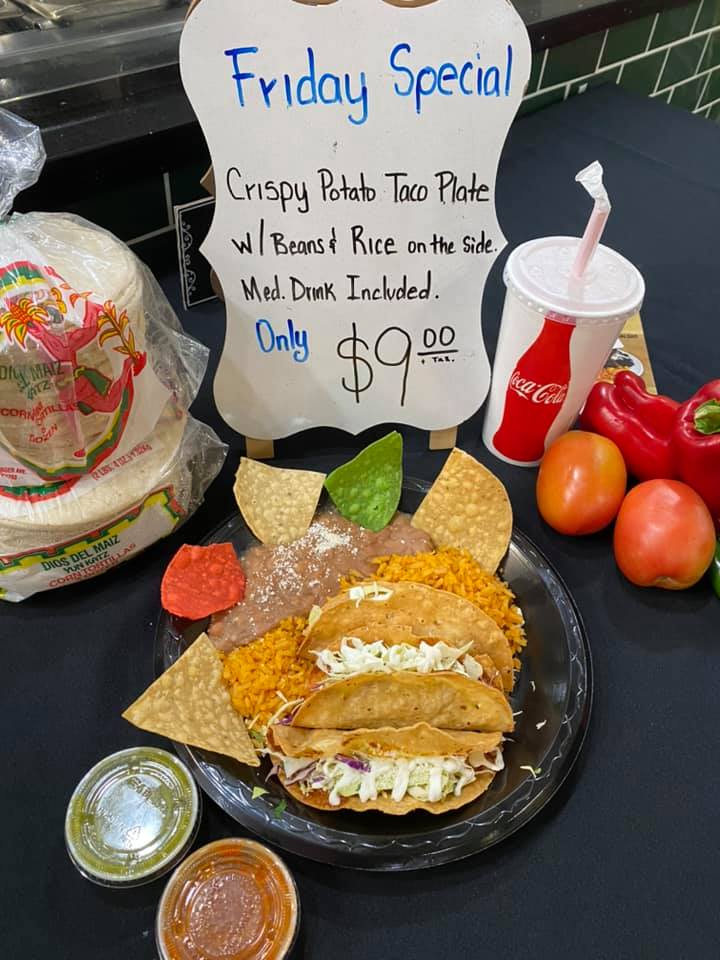 Friday Special
Crispy Potato Taco Plate
w/Beans & Rice on the side.
Med. Drink Included.
Only $9.00
+ TAX.
Coca-Cola
MAIZ
CORN TORTILLAS
DOZEN
DIOS DEL MAIZ
YUM KA'ITZ
CORN TORTILLAS